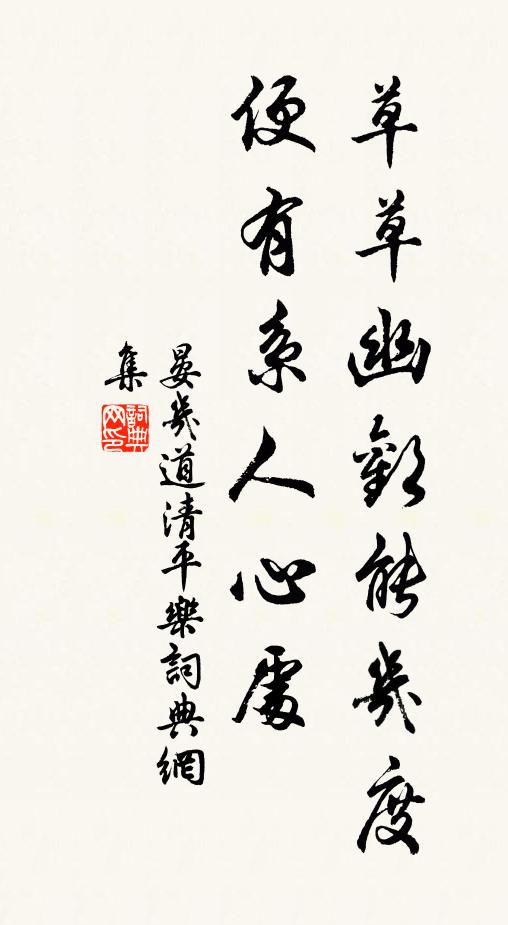 草草幽歡能幾度
便有系人心處
晏幾道清平樂詞典網
集
詞典网印